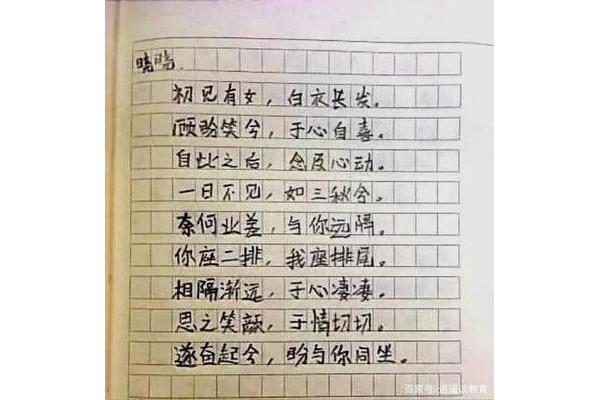 晓晓.
初见有女，白衣长发。
顾盼笑兮，于心自喜。
自此之后，念及心动。
一日不见，如三秋兮。
奈何业差，与你远隔。
你座二排，我座排尾。
相隔渐远，于心凄凄。
思之笑颜，于情切切。
遂奋起兮，盼与你同坐。
百家号/逍遥谈教育